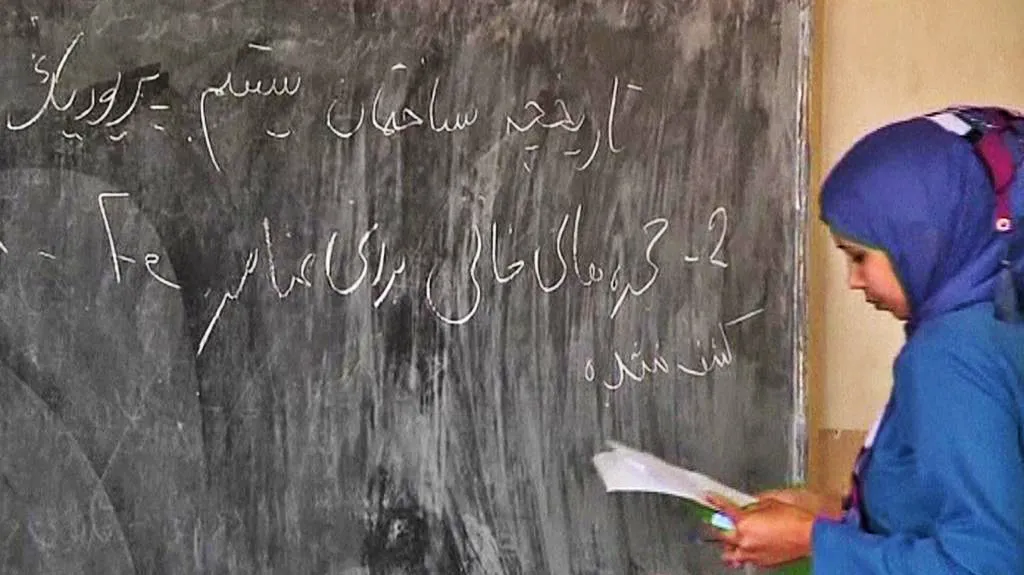 تاریخچه ساختمان سیستم پریودیک
2- حجره های خالی برای عناصر Fe -
کشف نشده